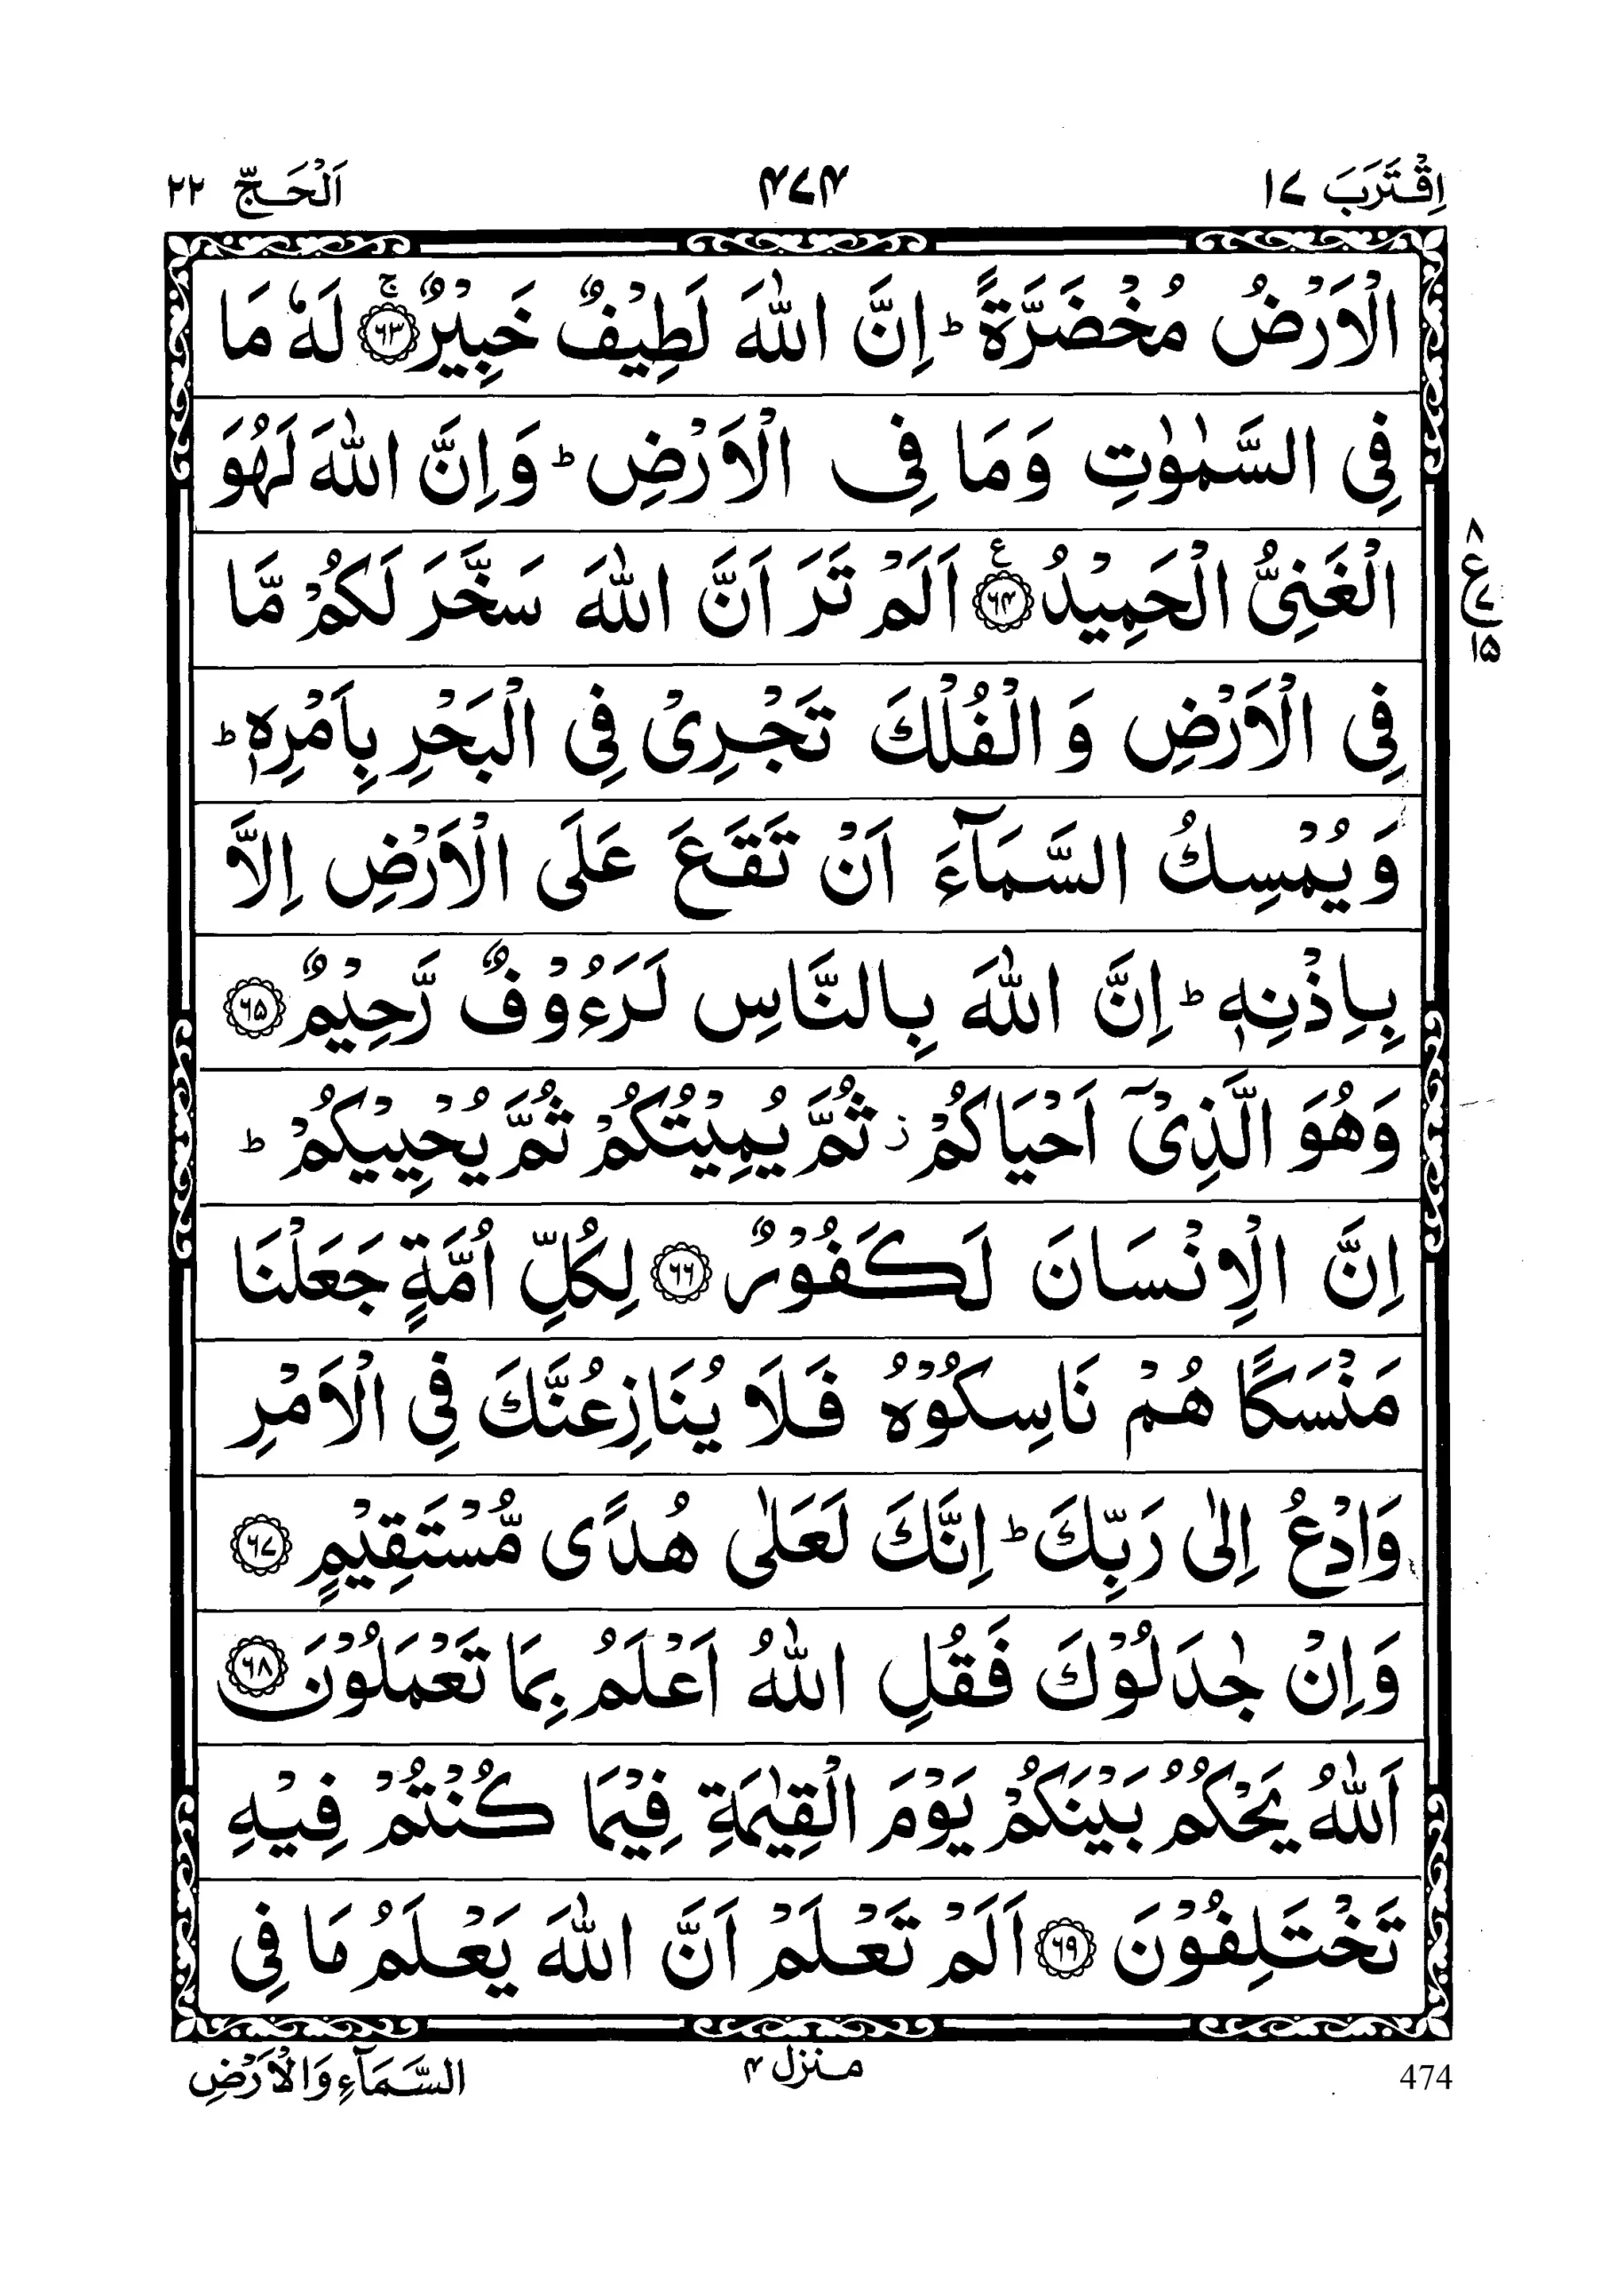 اِقْتَرَبَ ١٧ ٤٧٤ اَلْحَجّ ٢٢
الْاَرْضُ مُخْضَرَّةً ؕ اِنَّ اللّٰهَ لَطِيْفٌ خَبِيْرٌ ۚ﴿٦٣﴾ لَهٗ مَا
فِي السَّمٰوٰتِ وَمَا فِي الْاَرْضِ ؕ وَاِنَّ اللّٰهَ لَهُوَ
الْغَنِيُّ الْحَمِيْدُ ﴿٦٤﴾ ع اَلَمْ تَرَ اَنَّ اللّٰهَ سَخَّرَ لَكُمْ مَّا
٨
ع ٧
١٥
فِي الْاَرْضِ وَ الْفُلْكَ تَجْرِيْ فِي الْبَحْرِ بِاَمْرِهٖ ؕ
وَيُمْسِكُ السَّمَآءَ اَنْ تَقَعَ عَلَى الْاَرْضِ اِلَّا
بِاِذْنِهٖ ؕ اِنَّ اللّٰهَ بِالنَّاسِ لَرَءُوْفٌ رَّحِيْمٌ ﴿٦٥﴾
وَهُوَ الَّذِيْۤ اَحْيَاكُمْ ز ثُمَّ يُمِيْتُكُمْ ثُمَّ يُحْيِيْكُمْ ؕ
اِنَّ الْاِنْسَانَ لَكَفُوْرٌ ﴿٦٦﴾ لِكُلِّ اُمَّةٍ جَعَلْنَا
مَنْسَكًا هُمْ نَاسِكُوْهُ فَلَا يُنَازِعُنَّكَ فِي الْاَمْرِ
وَادْعُ اِلٰى رَبِّكَ ؕ اِنَّكَ لَعَلٰى هُدًى مُّسْتَقِيْمٍ ﴿٦٧﴾
وَاِنْ جٰدَلُوْكَ فَقُلِ اللّٰهُ اَعْلَمُ بِمَا تَعْمَلُوْنَ ﴿٦٨﴾
اَللّٰهُ يَحْكُمُ بَيْنَكُمْ يَوْمَ الْقِيٰمَةِ فِيْمَا كُنْتُمْ فِيْهِ
تَخْتَلِفُوْنَ ﴿٦٩﴾ اَلَمْ تَعْلَمْ اَنَّ اللّٰهَ يَعْلَمُ مَا فِي
474 منزل ٤ السَّمَآءِ وَالْاَرْضِ